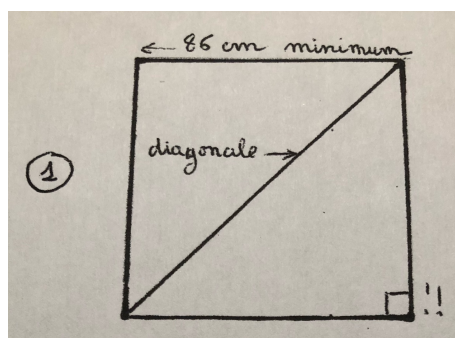 ← 86 cm minimum
diagonale →
1
!!